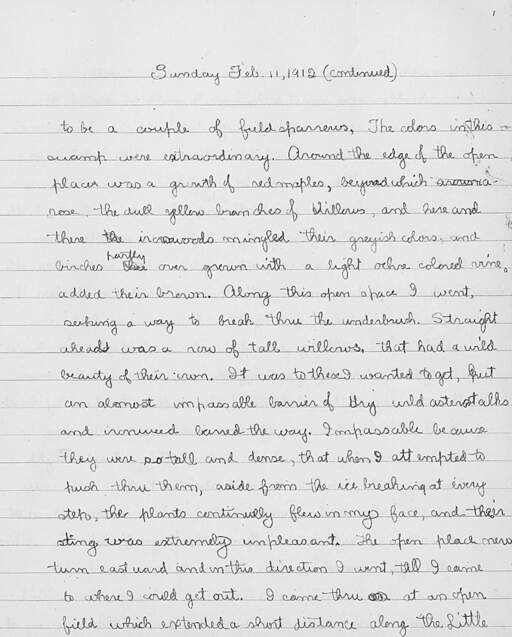 1
Sunday Feb. 11, 1912 (continued)
to be a couple of field sparrows. The colors in this
swamp were extraordinary. Around the edge of the open
places was a growth of red maples, beyond which
rose the dull yellow branches of willows, and here and
there the ironwoods mingled their greyish colors, and
birches partly over grown with a light ochre colored vine,
added their brown. Along this open space I went,
seeking a way to break thru the underbrush. Straight
ahead was a row of tall willows, that had a wild
beauty of their own. It was to these I wanted to get, but
an almost impassable barrier of dry wild aster stalks
and ironweed barred the way. Impassable because
they were so tall and dense, that when I attempted to
push thru them, aside from the ice breaking at every
step, the plants continually flew in my face, and their
sting was extremely unpleasant. The open place now
turn eastward and in this direction I went, till I came
to where I could get out. I came thru at an open
field which extended a short distance along the Little